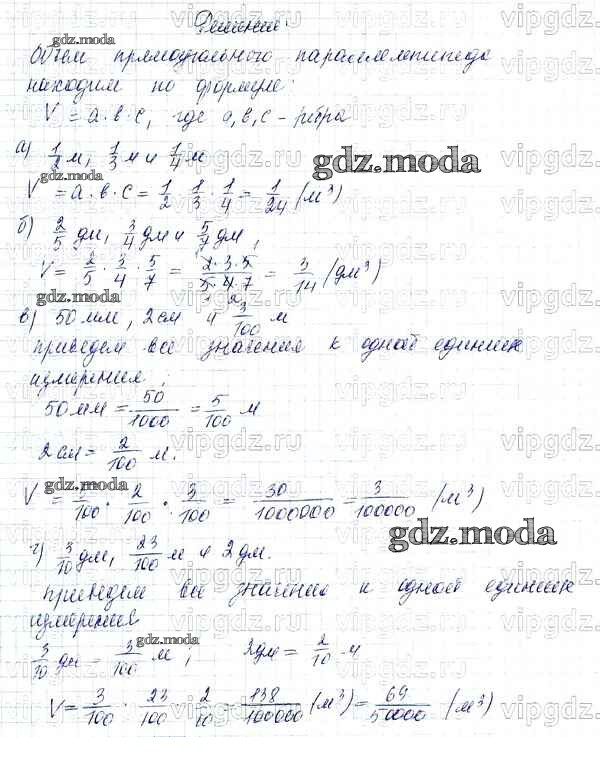 Решение:
Объем прямоугольного параллелепипеда
находим по формуле:
V = a · в · c, где a, в, c - ребра
а) 1/2 м, 1/3 м и 1/4 м
V = a · в · c = 1/2 · 1/3 · 1/4 = 1/24 (м³)
б) 2/5 дм, 3/4 дм и 5/7 дм,
V = 2/5 · 3/4 · 5/7 = 2·3·5/5·4·7 = 3/14 (дм³)
в) 50 мм, 2 см и 3/100 м
приведем все значения к одной единице
измерения:
50 мм = 50/1000 = 5/100 м
2 см = 2/100 м.
V = 5/100 · 2/100 · 3/100 = 30/1000000 = 3/100000 (м³)
г) 3/10 дм, 23/100 м и 2 дм.
приведем все значения к одной единице
измерения
3/10 дм = 3/100 м, 2 дм = 2/10 м
V = 3/100 · 23/100 · 2/10 = 138/100000 (м³) = 69/50000 (м³)
gdz.moda
vipgdz.ru